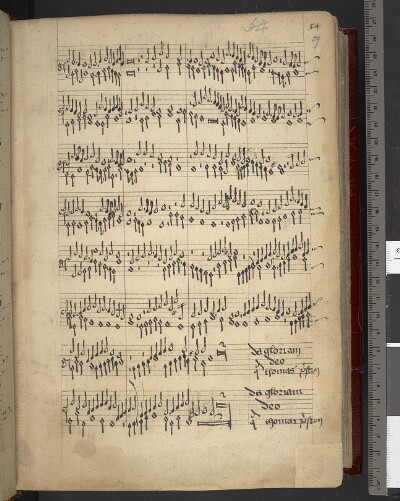 54
54
9
da gloriam
deo
thomas p̄ston
da gloriam
deo
thomas p̄ston